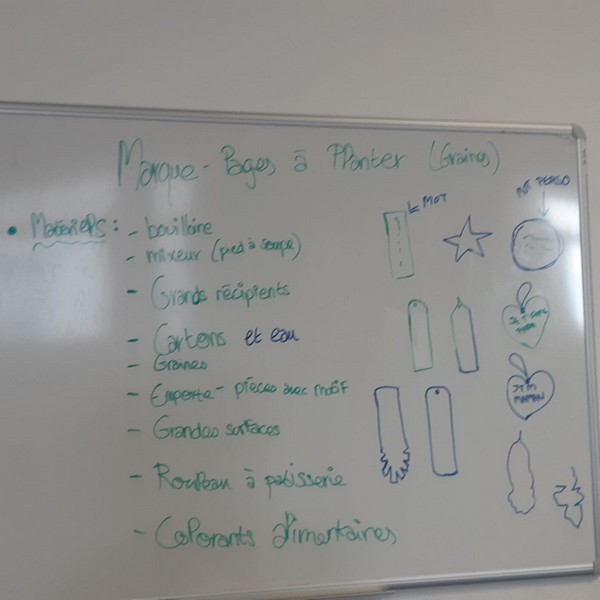 Marque-Pages à Planter (Graines)
MOT PERSO
MOT
• Matériels : - bouilloire
- mixeur (pied à soupe)
- Grands récipients
- Cartons et eau
- Graines
- Emporte-pièces avec motif
- Grandes surfaces
- Rouleau à patisserie
- Colorants alimentaires
JE T'AIME
PAPA
JTM
MAMAN